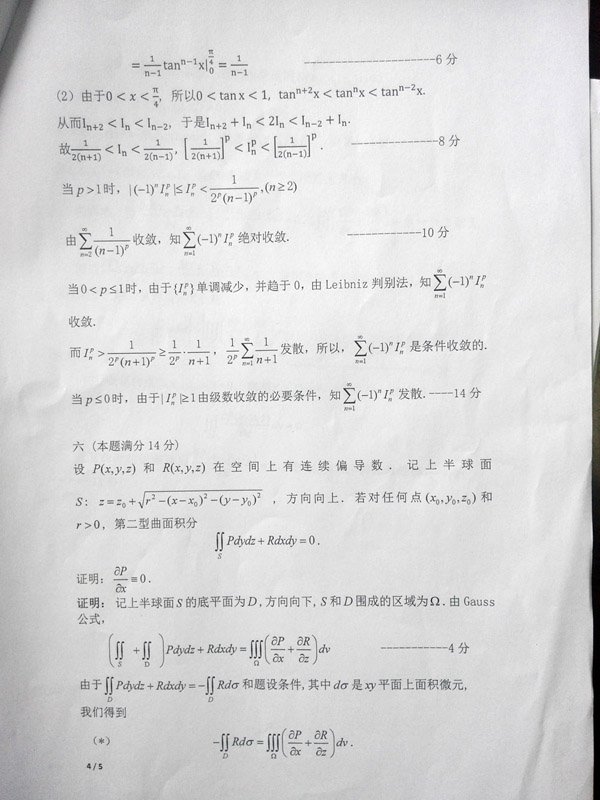 = \frac{1}{n-1}tan^{n-1}x|_0^{\frac{π}{4}} = \frac{1}{n-1} ----------------------6 分
(2) 由于0 < x < \frac{π}{4}, 所以0 < tan x < 1, tan^{n+2}x < tan^n x < tan^{n-2}x.
从而I_{n+2} < I_n < I_{n-2}, 于是I_{n+2} + I_n < 2I_n < I_{n-2} + I_n.
故\frac{1}{2(n+1)} < I_n < \frac{1}{2(n-1)}, [\frac{1}{2(n+1)}]^p < I_n^p < [\frac{1}{2(n-1)}]^p. --------------8 分
当 p > 1 时, |(-1)^n I_n^p| ≤ I_n^p < \frac{1}{2^p(n-1)^p}, (n ≥ 2)
由 \sum_{n=2}^{∞} \frac{1}{(n-1)^p} 收敛, 知 \sum_{n=1}^{∞} (-1)^n I_n^p 绝对收敛. ------------10 分
当 0 < p ≤ 1 时, 由于 {I_n^p} 单调减少, 并趋于 0, 由 Leibniz 判别法, 知 \sum_{n=1}^{∞} (-1)^n I_n^p
收敛.
而 I_n^p > \frac{1}{2^p(n+1)^p} ≥ \frac{1}{2^p} · \frac{1}{n+1}, \frac{1}{2^p} \sum_{n=1}^{∞} \frac{1}{n+1} 发散, 所以, \sum_{n=1}^{∞} (-1)^n I_n^p 是条件收敛的.
当 p ≤ 0 时, 由于 |I_n^p| ≥ 1 由级数收敛的必要条件, 知 \sum_{n=1}^{∞} (-1)^n I_n^p 发散. ----14 分
六 (本题满分 14 分)
设 P(x,y,z) 和 R(x,y,z) 在空间上有连续偏导数. 记上半球面
S: z = z_0 + \sqrt{r^2 - (x-x_0)^2 - (y-y_0)^2}, 方向向上. 若对任何点 (x_0,y_0,z_0) 和
r > 0, 第二型曲面积分
\iint_S Pdydz + Rdxdy = 0.
证明: \frac{∂P}{∂x} ≡ 0.
证明: 记上半球面 S 的底平面为 D, 方向向下, S 和 D 围成的区域为 Ω. 由 Gauss
公式,
(\iint_S + \iint_D) Pdydz + Rdxdy = \iiint_Ω (\frac{∂P}{∂x} + \frac{∂R}{∂z}) dv -----------4 分
由于 \iint_D Pdydz + Rdxdy = -\iint_D Rdσ 和题设条件, 其中 dσ 是 xy 平面上面积微元,
我们得到
(*) -\iint_D Rdσ = \iiint_Ω (\frac{∂P}{∂x} + \frac{∂R}{∂z}) dv.
4 / 5